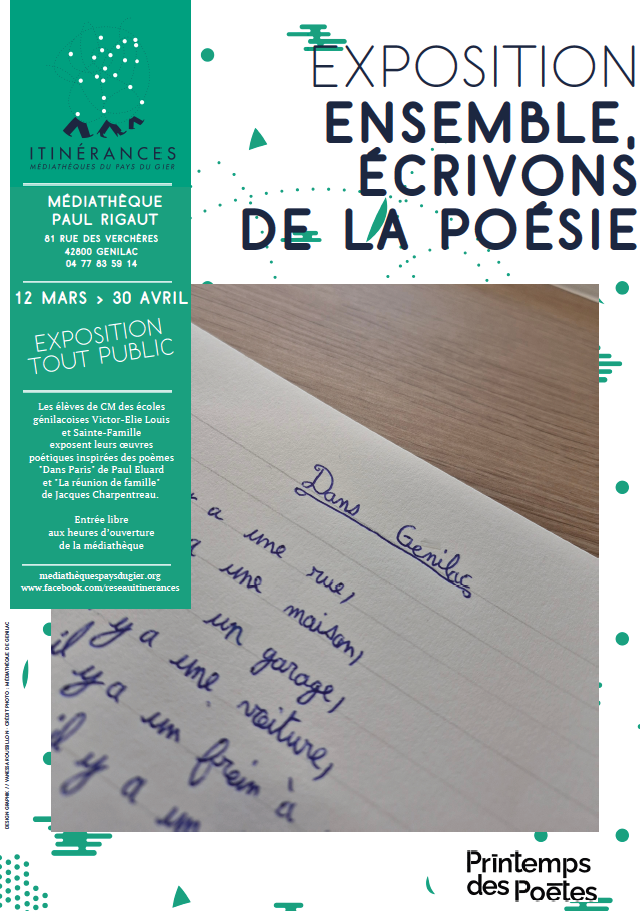 EXPOSITION
ENSEMBLE,
ÉCRIVONS
DE LA POÉSIE
ITINÉRANCES
MÉDIATHÈQUES DU PAYS DU GIER
MÉDIATHÈQUE
PAUL RIGAUT
81 RUE DES VERCHÈRES
42800 GENILAC
04 77 83 59 14
12 MARS > 30 AVRIL
EXPOSITION
TOUT PUBLIC
Les élèves de CM des écoles
génilacoises Victor-Elie Louis
et Sainte-Famille
exposent leurs œuvres
poétiques inspirées des poèmes
"Dans Paris" de Paul Eluard
et "La réunion de famille"
de Jacques Charpentreau.
Entrée libre
aux heures d'ouverture
de la médiathèque
mediathèquespaysdugier.org
www.facebook.com/reseauitinerances
Dans Genilac
a une rue,
a une maison,
y a un garage,
il y a une voiture,
il y a un frein à
il y a un
DESIGN GRAPHIK // VANESSA ROUSSILLON - CRÉDIT PHOTO : MÉDIATHÈQUE DE GENILAC
Printemps
des Poètes